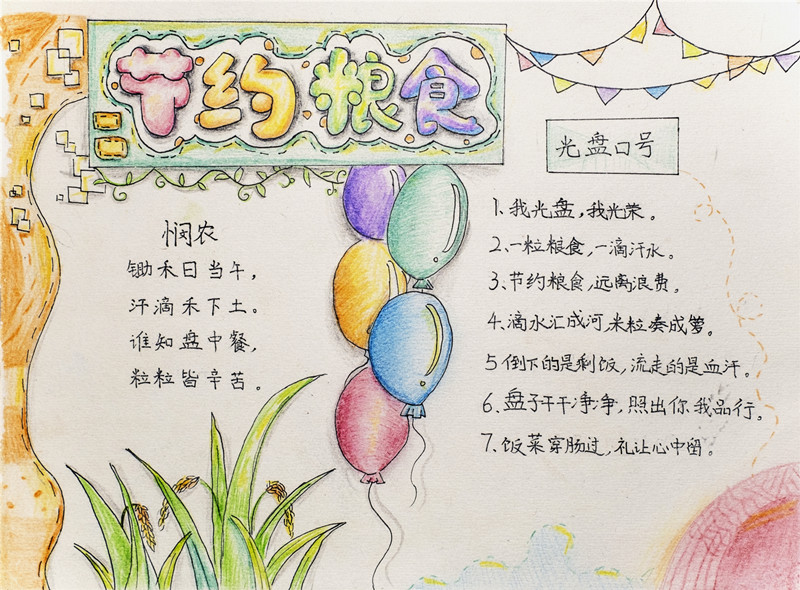 节约粮食
悯农
锄禾日当午，
汗滴禾下土。
谁知盘中餐，
粒粒皆辛苦。
光盘口号
1、我光盘，我光荣。
2、一粒粮食，一滴汗水。
3、节约粮食，远离浪费。
4、滴水汇成河，米粒凑成箩。
5、倒下的是剩饭，流走的是血汗。
6、盘子干干净净，照出你我品行。
7、饭菜穿肠过，礼让心中留。